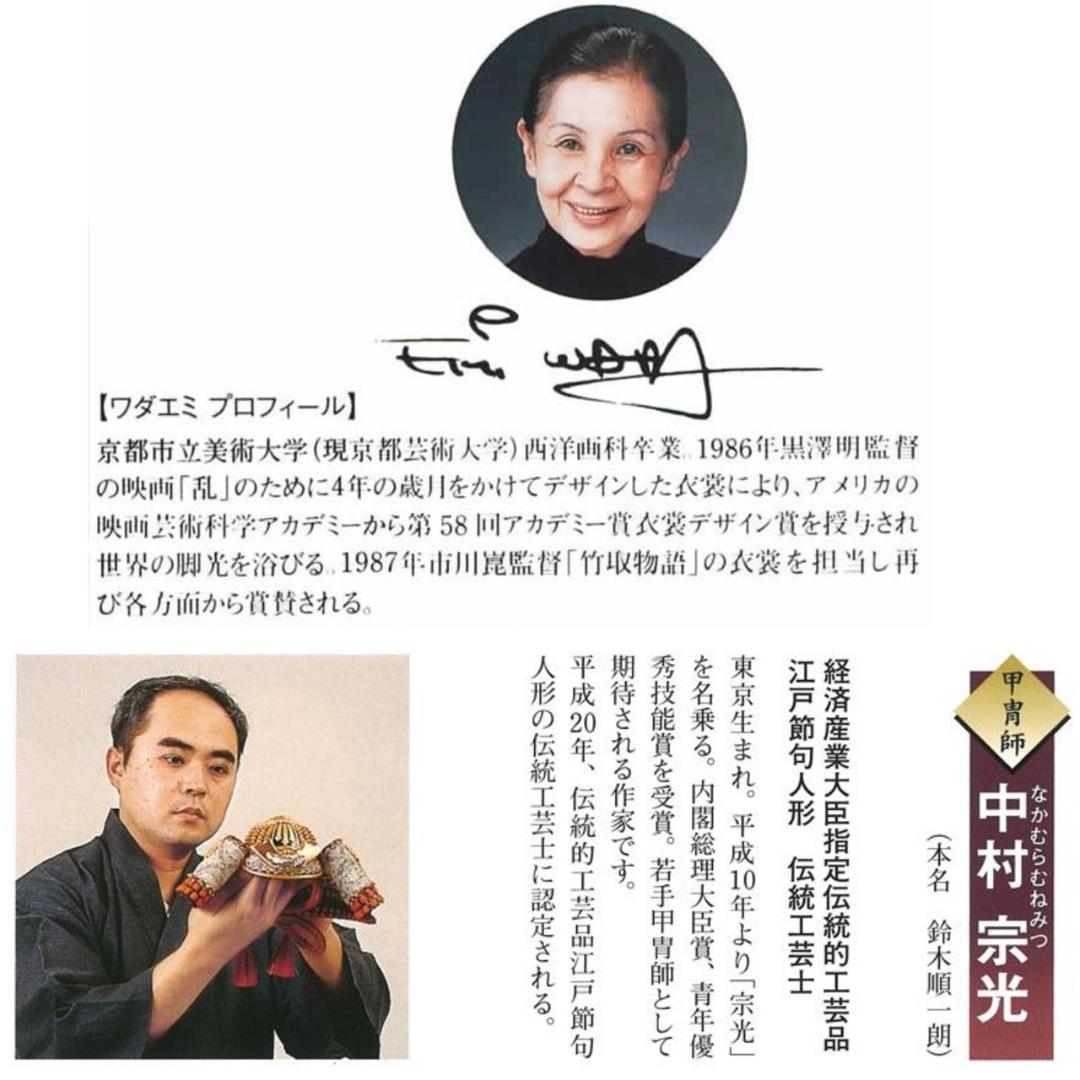 Emi Wada
【ワダエミ プロフィール】
京都市立美術大学(現京都芸術大学)西洋画科卒業。1986年黒澤明監督
の映画「乱」のために4年の歳月をかけてデザインした衣裳により、アメリカの
映画芸術科学アカデミーから第58回アカデミー賞衣裳デザイン賞を授与され
世界の脚光を浴びる。1987年市川崑監督「竹取物語」の衣裳を担当し再
び各方面から賞賛される。
甲冑師
中村 宗光
なかむらむねみつ
(本名 鈴木順一朗)
経済産業大臣指定伝統的工芸品
江戸節句人形 伝統工芸士
東京生まれ。平成10年より「宗光」
を名乗る。内閣総理大臣賞、青年優
秀技能賞を受賞。若手甲冑師として
期待される作家です。
平成20年、伝統的工芸品江戸節句
人形の伝統工芸士に認定される。